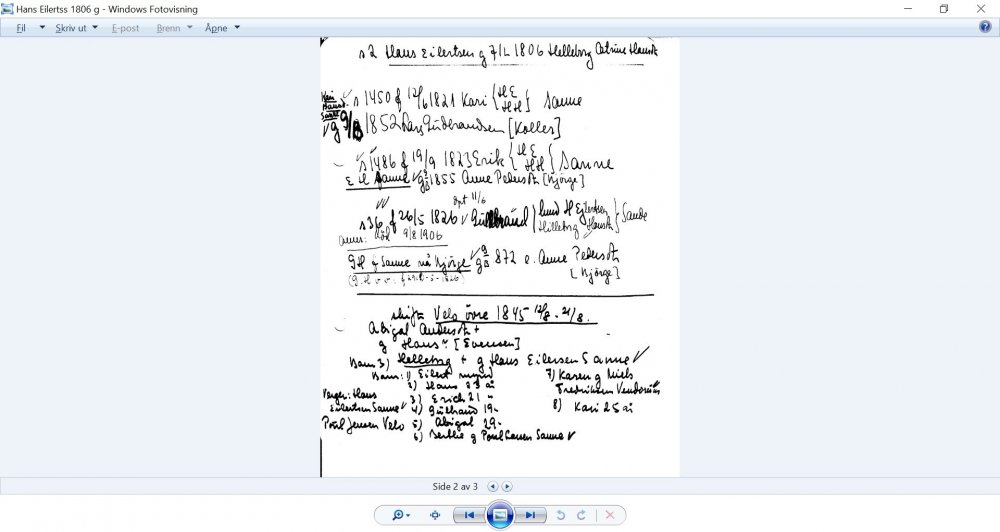 Hans Eilertss 1806 g - Windows Fotovisning
Fil Skriv ut E-post Brenn Åpne
s 2 Hans Eilertsen g 7/1 1806 Helleborg Catrine Hansdt
Kari
Hansd.
Sande
s 1450 f 12/6 1821 Kari { HE HH } Sanne
g 1852 Lars Gudbrandsen [Koller]
s 1486 f 19/9 1823 Erik { HE HH } Sanne
E H Sanne g 1855 Anne Pedersdt [Kjörge]
dpt 11/6
s 36 f 26/5 1826 Gulbrand { Hans H Ejlertsen Hilleborg Hansdt } Sande
anm: död 9/8 1906
GH g Sanne nå Kjörge g 872 e. Anne Pedersdt
[Kjörge]
skifte Velo övre 1845 12/8 - 21/8.
Abigal Andersdt +
g Hans [Evensen]
Barn 3) Helleborg + g Hans Eilersen Sanne
Barn: 1) Eilert mynd
2) Hans 23 år
Verger: Hans 3) Erich 21 "
Eilertsen Sanne 4) Gulbrand 19 -
Poul Jensen Velo 5) Abigal 29 -
6) Berthe g Poul Larsen Sanne
7) Karen g Niels
Fredriksen
8) Kari 25 år
Side 2 av 3